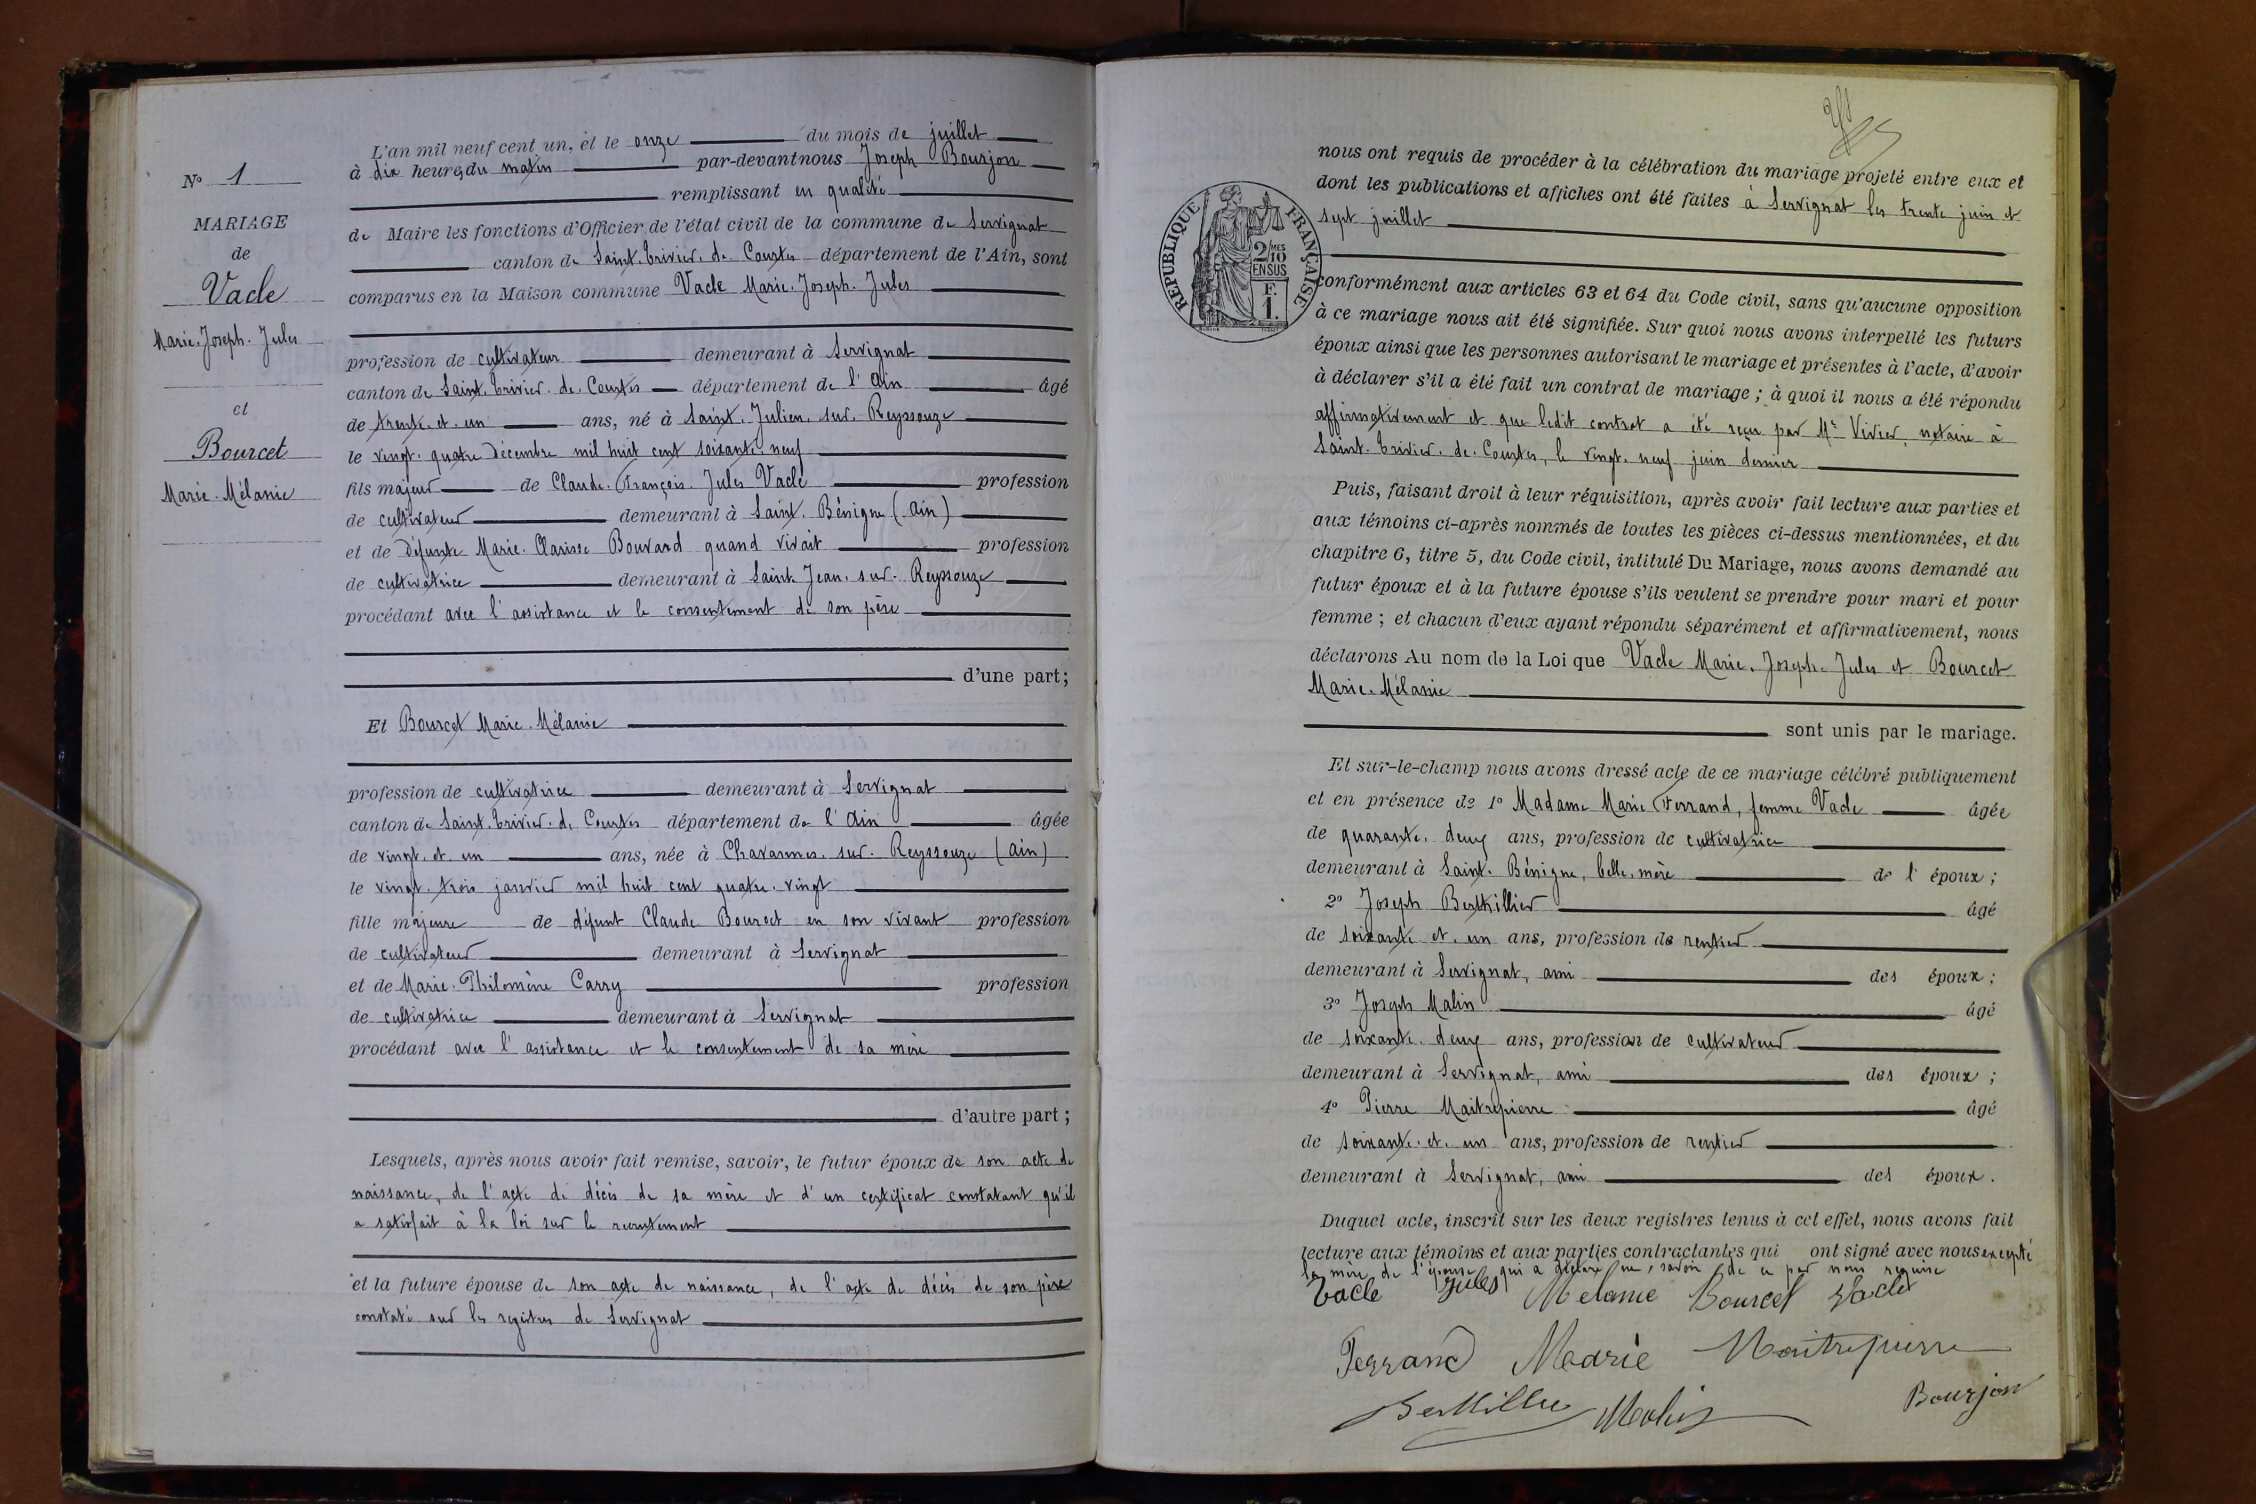 N° 1
MARIAGE
de
Vacle
Marie-Joseph-Jules
et
Bourcet
Marie-Mélanie
L'an mil neuf cent un, et le onze du mois de juillet
à dix heures du matin par-devant nous Joseph Bourjon
remplissant en qualité
de Maire les fonctions d'Officier de l'état civil de la commune de Servignat
canton de Saint-Trivier-de-Courtes département de l'Ain, sont
comparus en la Maison commune Vacle Marie-Joseph-Jules
profession de cultivateur demeurant à Servignat
canton de Saint-Trivier-de-Courtes département de l'Ain âgé
de trente-et-un ans, né à Saint-Julien-sur-Reyssouze
le vingt-quatre Décembre mil huit cent soixante-neuf
fils majeur de Claude-François-Jules Vacle profession
de cultivateur demeurant à Saint-Bénigne (Ain)
et de Défunte Marie-Clarisse Bouvard quand vivait profession
de cultivatrice demeurant à Saint-Jean-sur-Reyssouze
procédant avec l'assistance et le consentement de son père
d'une part;
Et Bourcet Marie-Mélanie
profession de cultivatrice demeurant à Servignat
canton de Saint-Trivier-de-Courtes département de l'Ain âgée
de vingt-et-un ans, née à Chavannes-sur-Reyssouze (Ain)
le vingt-trois janvier mil huit cent quatre-vingt
fille majeure de défunt Claude Bourcet en son vivant profession
de cultivateur demeurant à Servignat
et de Marie-Philomène Carry profession
de cultivatrice demeurant à Servignat
procédant avec l'assistance et le consentement de sa mère
d'autre part;
Lesquels, après nous avoir fait remise, savoir, le futur époux de son acte de
naissance, de l'acte de décès de sa mère et d'un certificat constatant qu'il
a satisfait à la loi sur le recrutement
et la future épouse de son acte de naissance, de l'acte de décès de son père
constaté sur les registres de Servignat
nous ont requis de procéder à la célébration du mariage projeté entre eux et
dont les publications et affiches ont été faites à Servignat les trente juin et
sept juillet
RÉPUBLIQUE FRANÇAISE
2/10 MES
EN SUS
F.
1.
conformément aux articles 63 et 64 du Code civil, sans qu'aucune opposition
à ce mariage nous ait été signifiée. Sur quoi nous avons interpellé les futurs
époux ainsi que les personnes autorisant le mariage et présentes à l'acte, d'avoir
à déclarer s'il a été fait un contrat de mariage; à quoi il nous a été répondu
affirmativement et que ledit contrat a été reçu par Me Vivier, notaire à
Saint-Trivier-de-Courtes, le vingt-neuf juin dernier
Puis, faisant droit à leur réquisition, après avoir fait lecture aux parties et
aux témoins ci-après nommés de toutes les pièces ci-dessus mentionnées, et du
chapitre 6, titre 5, du Code civil, intitulé Du Mariage, nous avons demandé au
futur époux et à la future épouse s'ils veulent se prendre pour mari et pour
femme; et chacun d'eux ayant répondu séparément et affirmativement, nous
déclarons Au nom de la Loi que Vacle Marie-Joseph-Jules et Bourcet
Marie-Mélanie
sont unis par le mariage.
Et sur-le-champ nous avons dressé acte de ce mariage célébré publiquement
et en présence de 1° Madame Marie Ferrand, femme Vacle âgée
de quarante-deux ans, profession de cultivatrice
demeurant à Saint-Bénigne, belle-mère de l'époux;
2° Joseph Berthillier âgé
de soixante-et-un ans, profession de rentier
demeurant à Servignat, ami des époux;
3° Joseph Malin âgé
de soixante-deux ans, profession de cultivateur
demeurant à Servignat, ami des époux;
4° Pierre Maitrepierre âgé
de soixante-et-un ans, profession de rentier
demeurant à Servignat, ami des époux.
Duquel acte, inscrit sur les deux registres tenus à cet effet, nous avons fait
lecture aux témoins et aux parties contractantes qui ont signé avec nous excepté
la mère de l'épouse qui a déclaré ne savoir de ce par nous requise
Vacle Jules Mélanie Bourcet Vacle
Ferrand Marie Maitrepierre
Berthillier Malin Bourjon